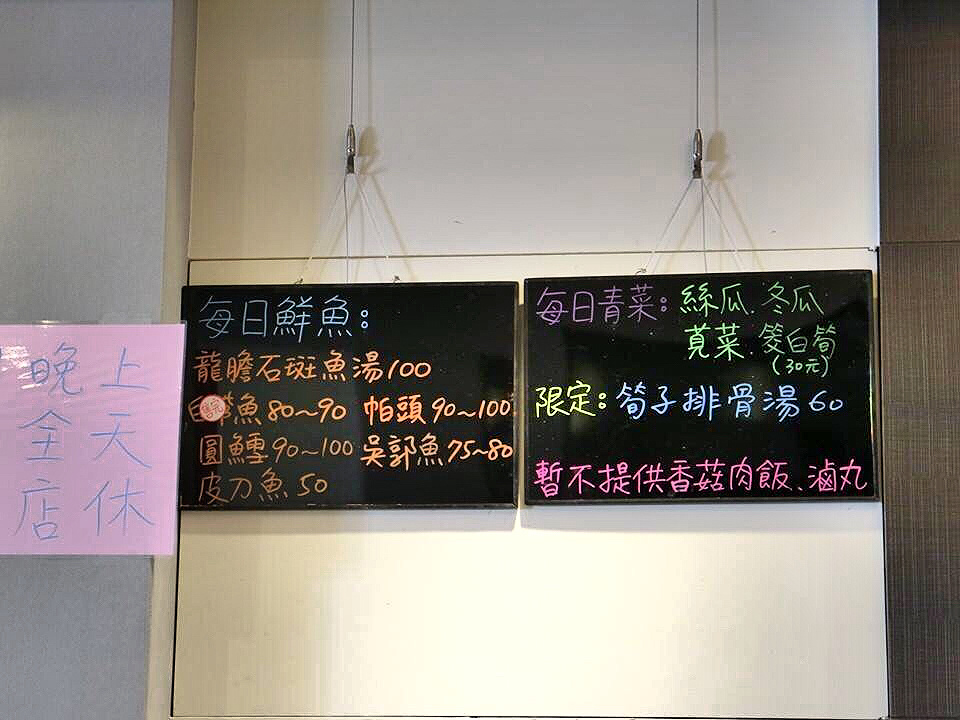 晚上
全天
店休
每日鮮魚：
龍膽石斑魚湯100
售完
魚80~90 帕頭90~100
圓鱈90~100 吳郭魚75~80
皮刀魚50
每日青菜：絲瓜、冬瓜
莧菜、筊白筍
（30元）
限定：筍子排骨湯60
暫不提供香菇肉飯、滷丸